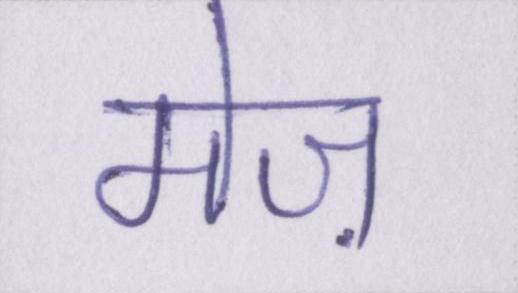 मेज़